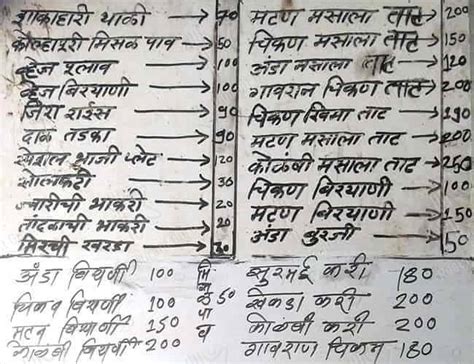 शाकाहारी थाळी → 90
कोल्हापुरी मिसळ पाव → 50
व्हेज पूलाव → 100
व्हेज बिरयाणी → 100
जिरा राईस → 90
दाळ तडका → 90
स्पेशल भाजी प्लेट → 120
सोलकढी → 30
ज्वारीची भाकरी → 20
तांदळाची भाकरी → 20
मिरची खरडा →
मटण मसाला ताट → 200
चिकण मसाला ताट → 150
अंडा मसाला ताट → 120
गावरान चिकण ताट → 200
चिकण खिमा ताट → 190
मटण मसाला ताट → 200
कोळंबी मसाला ताट → 250
चिकण बिरयाणी → 100
मटण बिरयाणी → 150
अंडा बुरजी → 50
अंडा बियर्णी 100
चिकन बियर्णी 100
मटन बियर्णी 150
कोळंबी बियर्णी 200
मिसळपाव 50
सुरमई करी 180
खेकडा करी 200
कोळंबी करी 200
गावराण चिकन 180